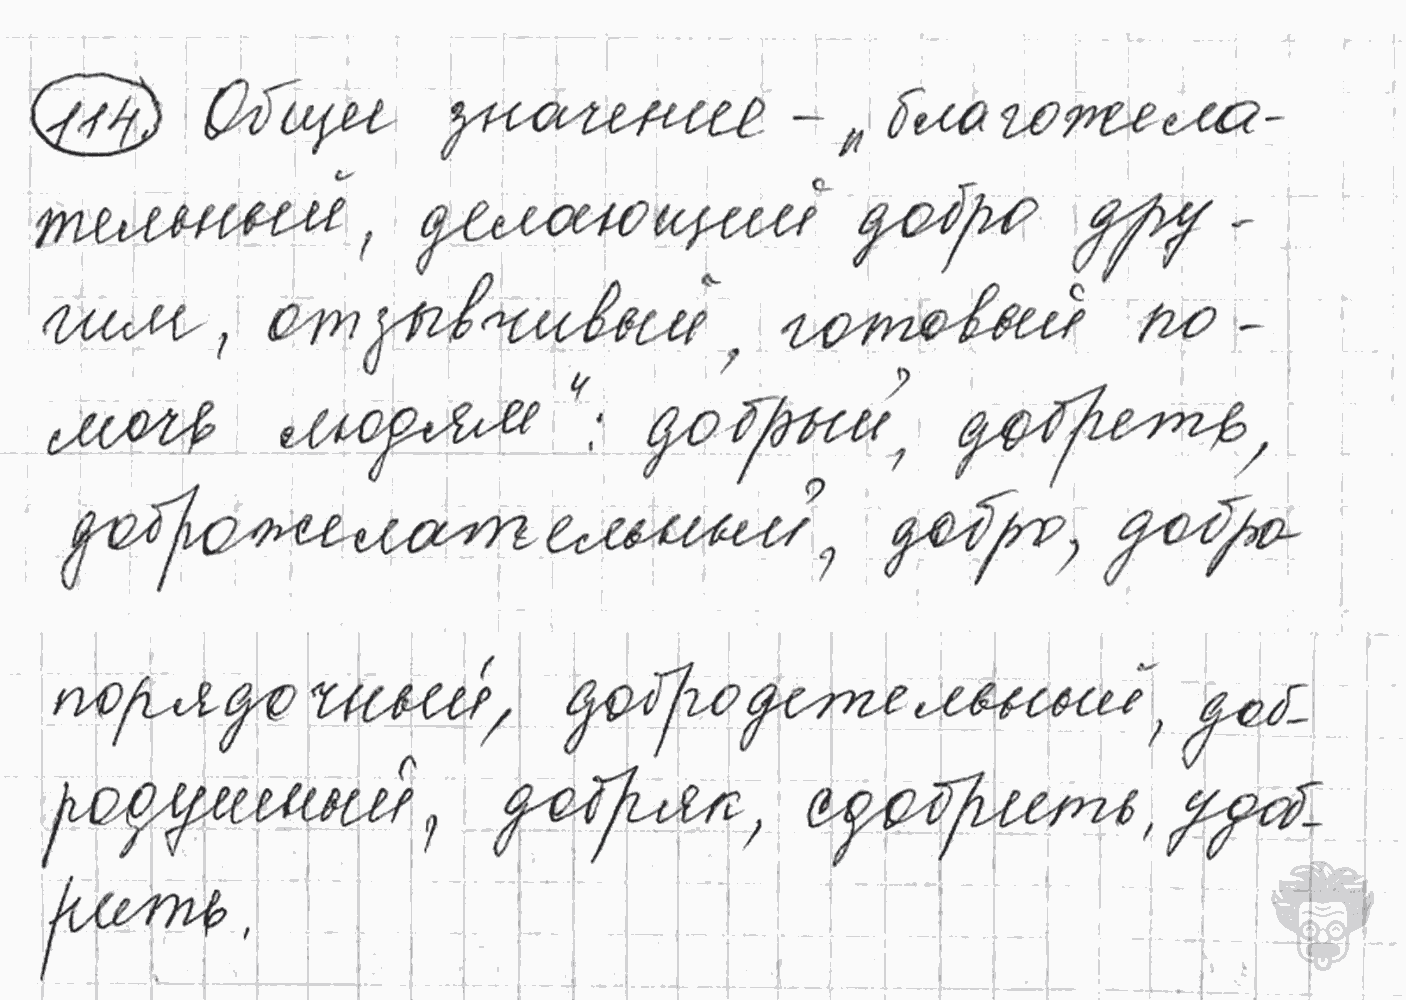 114. Общее значение – „благожела-
тельный, делающий добро дру-
гим, отзывчивый, готовый по-
мочь людям“: добрый, добреть,
доброжелательный, добро, добро
порядочный, добродетельный, доб-
родушный, добряк, сдобрить, удоб-
рить.